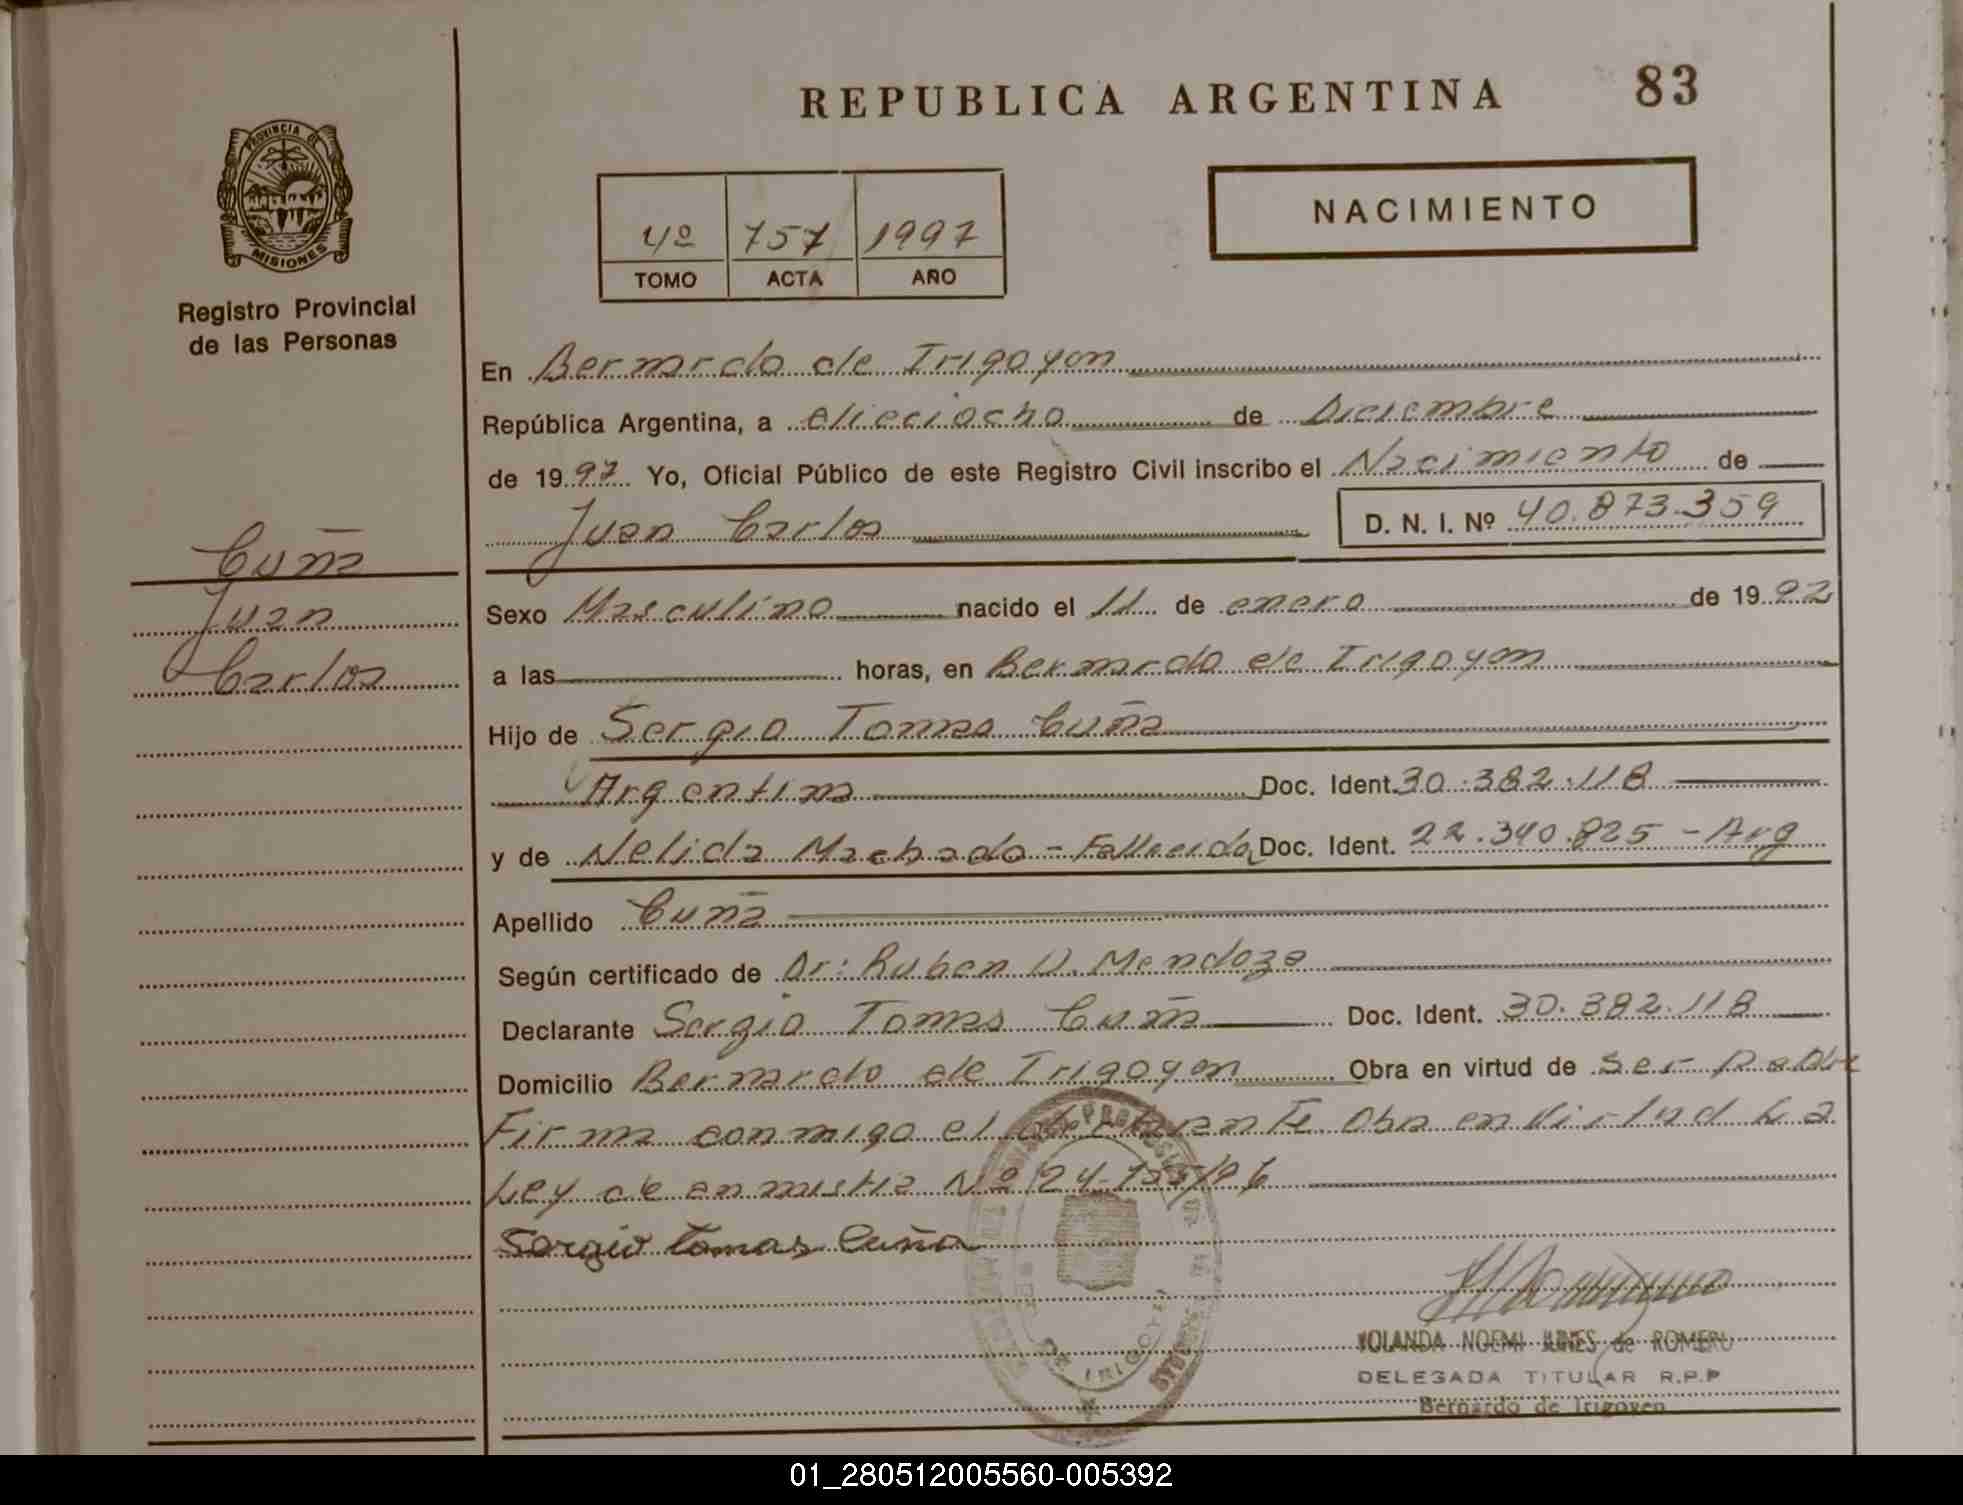 REPUBLICA ARGENTINA 83
PROVINCIA DE
MISIONES
Registro Provincial
de las Personas
4º 757 1997
TOMO ACTA AÑO
NACIMIENTO
En Bernardo de Irigoyen
República Argentina, a dieciocho de Diciembre
de 1997 Yo, Oficial Público de este Registro Civil inscribo el Nacimiento de
Juan Carlos D. N. I. Nº 40.873.359
Cuña
Juan
Carlos
Sexo Masculino nacido el 11 de enero de 1992
a las horas, en Bernardo de Irigoyen
Hijo de Sergio Tomas Cuña
Argentina Doc. Ident. 30.382.118
y de Nelida Machado - Fallecida Doc. Ident. 22.340.825 - Arg
Apellido Cuña
Según certificado de Dr: Ruben D. Mendoza
Declarante Sergio Tomas Cuña Doc. Ident. 30.382.118
Domicilio Bernardo de Irigoyen Obra en virtud de ser padre
Firma conmigo el declarante Obra en Virtud La
Ley de anmistia Nº 24.755/96
Sergio tomas Cuña
YOLANDA NOEMI de ROMERO
DELEGADA TITULAR R.P.P
Bernardo de Irigoyen
01_280512005560-005392